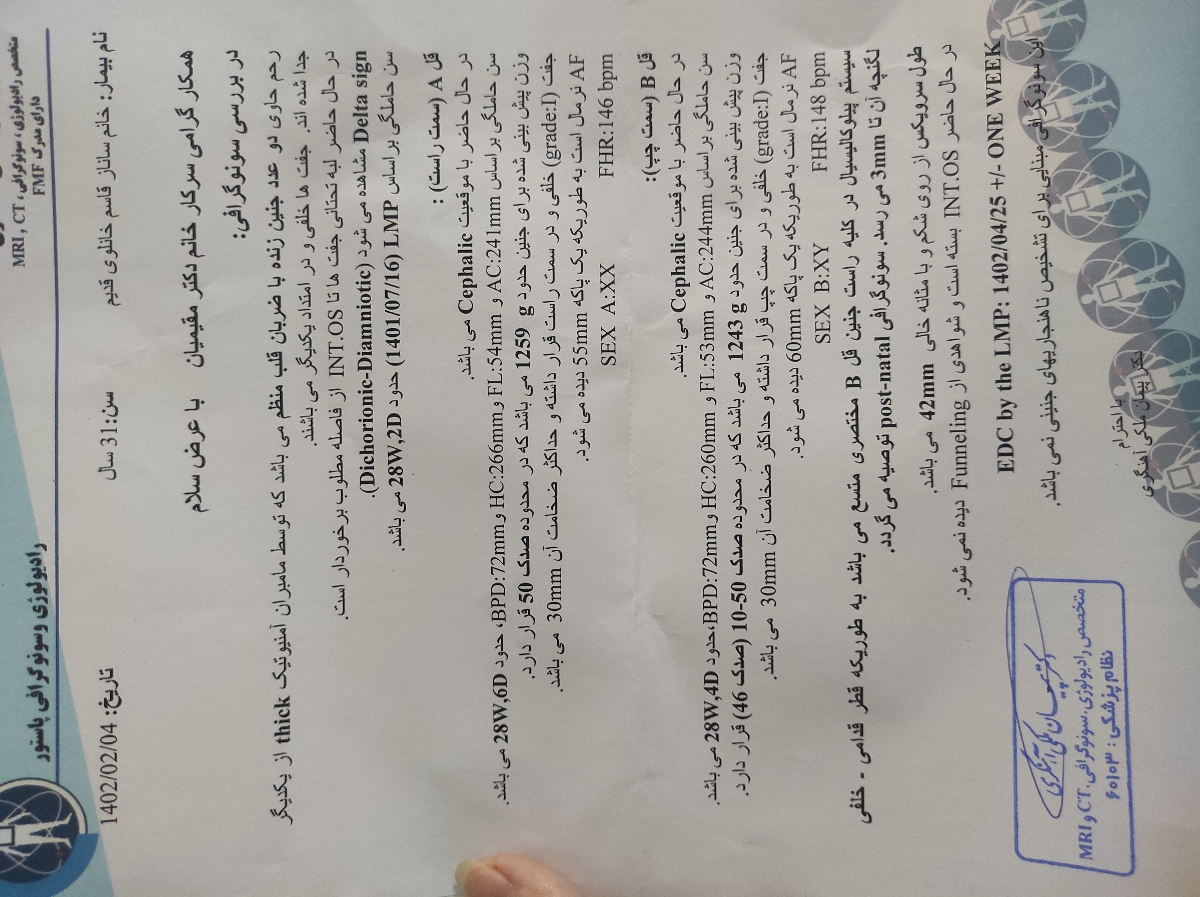 رادیولوژی وسونوگرافی پاستور
متخصص رادیولوژی، سونوگرافی،
MRI , CT
دارای مدرک FMF
نام بیمار: خانم ساناز قاسم خانلوی قدیم
سن:31 سال
تاریخ: 1402/02/04
همکار گرامی سرکار خانم دکتر مقیمیان با عرض سلام
در بررسی سونوگرافی:
رحم حاوی دو عدد جنین زنده با ضربان قلب منظم می باشد که توسط مامبران آمنیوتیک thick از یکدیگر
جدا شده اند. جفت ها خلفی و در امتداد یکدیگر می باشند.
در حال حاضر لبه تحتانی جفت ها تا INT.OS از فاصله مطلوب برخوردار است.
Delta sign مشاهده می شود (Dichorionic-Diamniotic).
سن حاملگی براساس LMP (1401/07/16) حدود 28W,2D می باشد.
قل A (سمت راست) :
در حال حاضر با موقعیت Cephalic می باشد.
سن حاملگی براساس AC:241mm و FL:54mm و HC:266mm و BPD:72mm، حدود 28W,6D می باشد.
وزن پیش بینی شده برای جنین حدود 1259 g می باشد که در محدوده صدک 50 قرار دارد.
جفت (grade:I) خلفی و در سمت راست قرار داشته و حداکثر ضخامت آن 30mm می باشد.
AF نرمال است به طوریکه یک پاکه 55mm دیده می شود.
FHR:146 bpm SEX A:XX
قل B (سمت چپ):
در حال حاضر با موقعیت Cephalic می باشد.
سن حاملگی براساس AC:244mm و FL:53mm و HC:260mm و BPD:72mm،حدود 28W,4D می باشد.
وزن پیش بینی شده برای جنین حدود 1243 g می باشد که در محدوده صدک 10-50 (صدک 46) قرار دارد.
جفت (grade:I) خلفی و در سمت چپ قرار داشته و حداکثر ضخامت آن 30mm می باشد.
AF نرمال است به طوریکه یک پاکه 60mm دیده می شود.
FHR:148 bpm SEX B:XY
سیستم پیلوکالیسیال در کلیه راست جنین قل B مختصری متسع می باشد به طوریکه قطر قدامی - خلفی
لگنچه آن تا 3mm می رسد. سونوگرافی post-natal توصیه می گردد.
طول سرویکس از روی شکم و با مثانه خالی 42mm می باشد.
در حال حاضر INT.OS بسته است و شواهدی از Funneling دیده نمی شود.
EDC by the LMP: 1402/04/25 +/- ONE WEEK
این سونوگرافی مبنایی برای تشخیص ناهنجاریهای جنینی نمی باشد.
با احترام
دکتر پیمان ملکی آهنگری
دکتر پیمان ملکی آهنگری
متخصص رادیولوژی، سونوگرافی، CT و MRI
نظام پزشکی : ۶۰۱۰۳